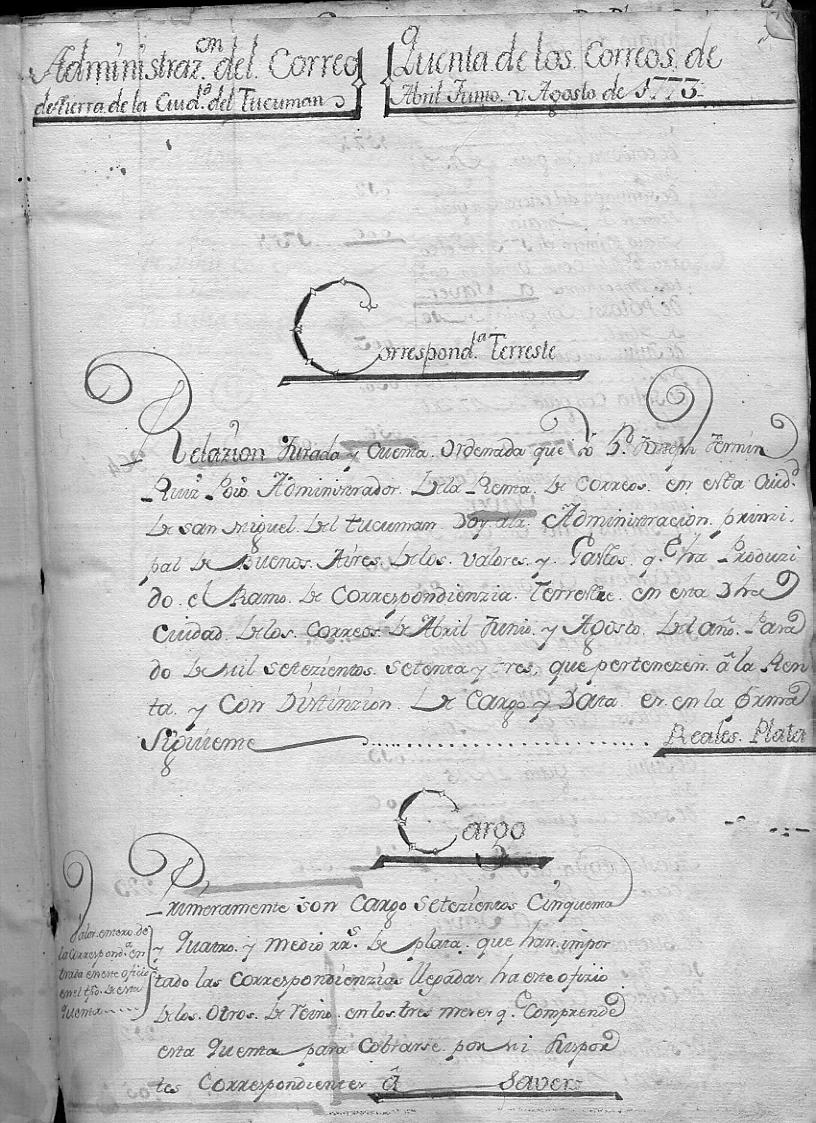 Administraz.on del. Correo
de tierra de la Ciud.a del Tucuman
Quenta de los. Correos. de
Abril Junio. y Agosto de 1773.
Correspond.ta Terreste
Relazion Jurada y Cuenta. Ordenada que Yo D.n Joseph Fermin
Ruiz Poio. Administrador. De la Renta. de Correos. en esta Ciud.d
de san Miguel. del tucuman Doy ala. Administracion. prinzi.
pal de Buenos. Aires. de los. valores. y. Gastos. q.e ha Produzi
do. el Ramo. de Correspondienzia. Terrestre. en esta Dha
Ciudad. de los. Correos. de Abril Junio. y Agosto. del año. Pasa
do de Mil setezientos. setenta y tres, que pertenezen. â la Ren
ta. y Con Distinzion. de Cargo y Data. es. en la forma
Siguiente ........ Reales. Plata
Cargo
Primeramente son Cargo setezientos Cinquenta
y Quatro. y medio rr.s de plata. que han. impor
tado las Correspondienzias llegadas ha este ofizio
de los. otros. de Reino. en los. tres meses q.e Comprende
esta Quenta para Cobrarse. por mi Respon
tes Correspondientes â Saver
Valor. entero. de
la Correspond.a en
trada en este oficio
en el tpo. de esta
Quenta.....